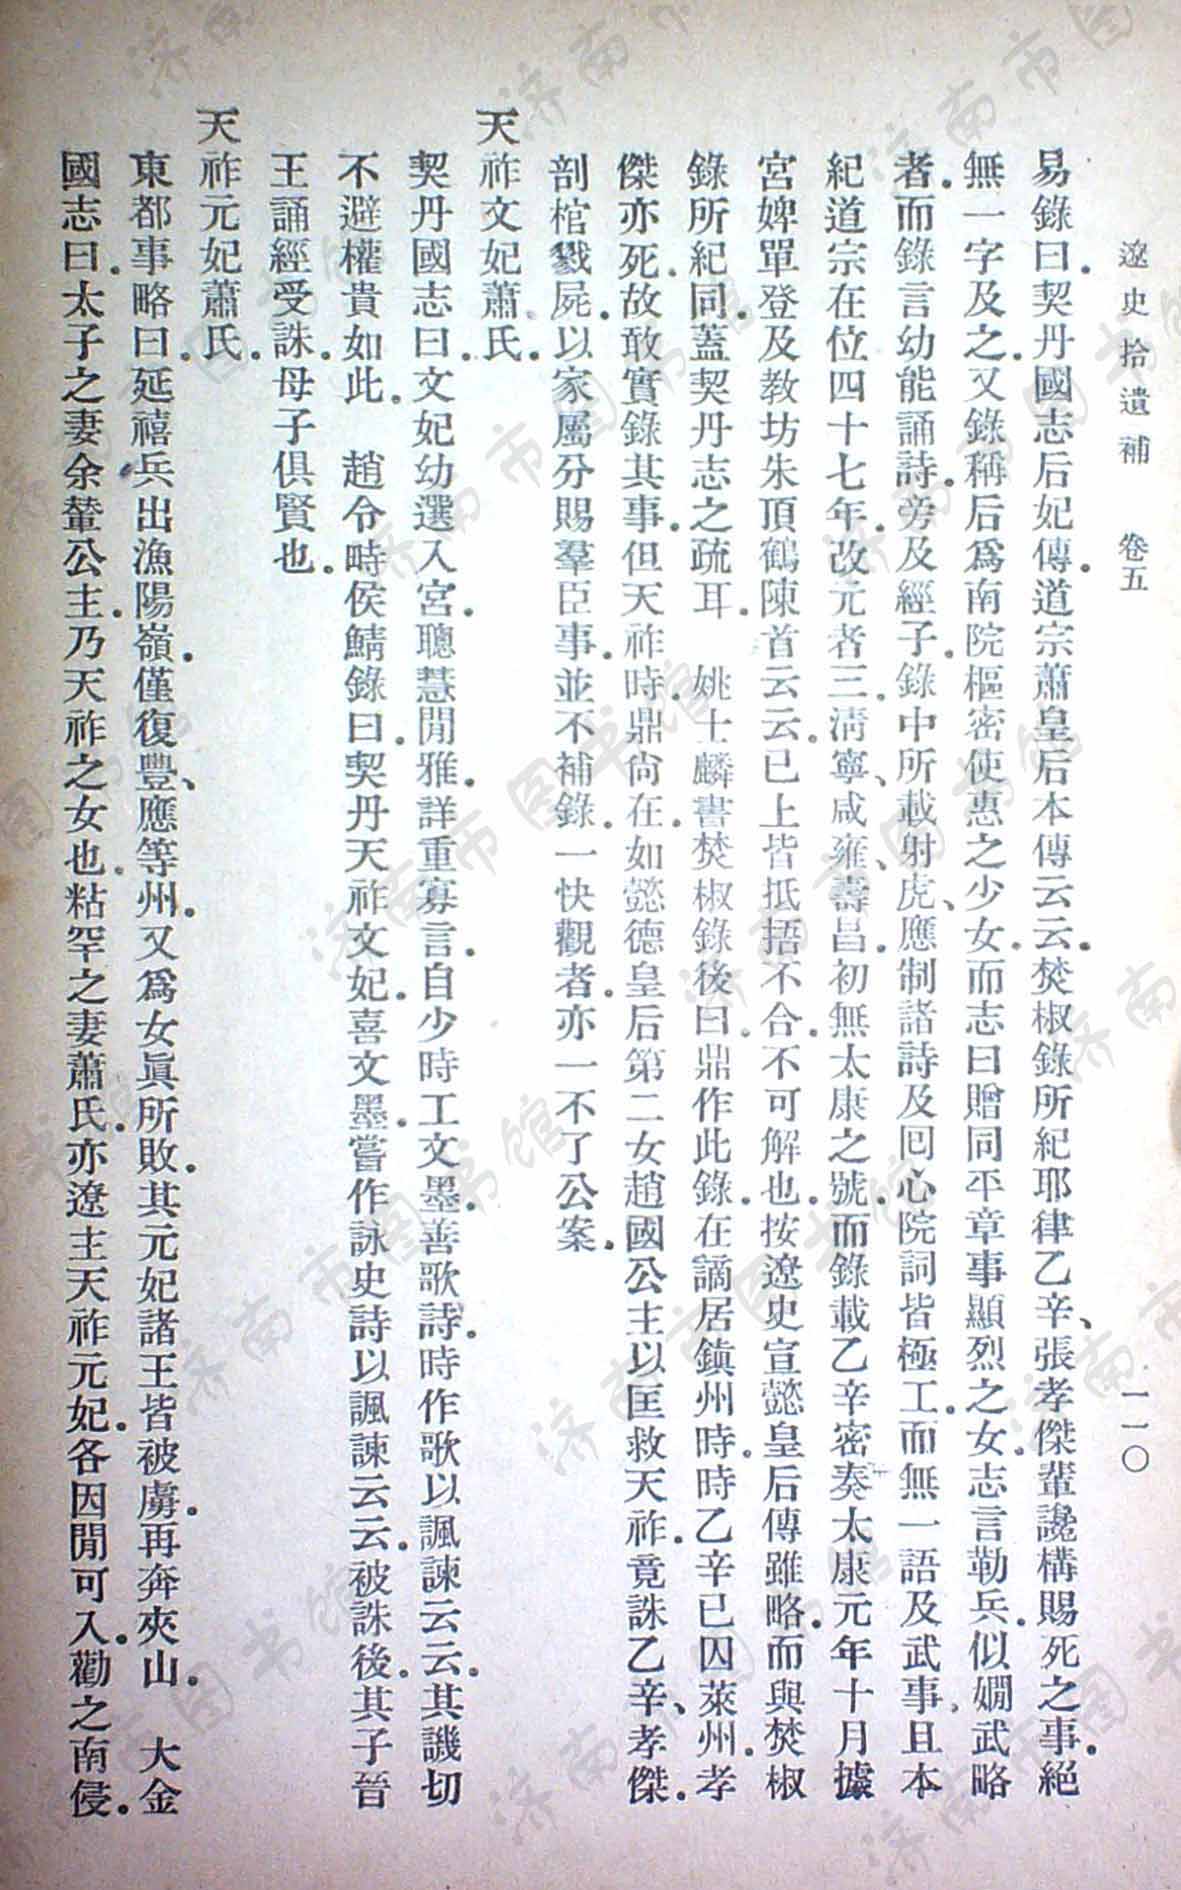 遼史拾遺補 卷五 一一〇
易錄曰契丹國志后妃傳道宗蕭皇后本傳云云焚椒錄所紀耶律乙辛、張孝傑輩讒構賜死之事絕
無一字及之又錄稱后爲南院樞密使惠之少女而志曰贈同平章事顯烈之女志言勒兵似嫺武略
者而錄言幼能誦詩旁及經子錄中所載射虎、應制諸詩及囘心院詞皆極工而無一語及武事且本
紀道宗在位四十七年改元者三清寧、咸雍、壽昌初無太康之號而錄載乙辛密奏太康元年十月據
宮婢單登及教坊朱頂鶴陳首云云已上皆抵捂不合不可解也按遼史宣懿皇后傳雖略而與焚椒
錄所紀同蓋契丹志之疏耳 姚士麟書焚椒錄後曰鼎作此錄在謫居鎮州時時乙辛已囚萊州孝
傑亦死故敢實錄其事但天祚時鼎尙在如懿德皇后第二女趙國公主以匡救天祚竟誅乙辛、孝傑
剖棺戮屍以家屬分賜羣臣事並不補錄一快觀者亦一不了公案
天祚文妃蕭氏
契丹國志曰文妃幼選入宮聰慧閒雅詳重寡言自少時工文墨善歌詩時作歌以諷諫云云其譏切
不避權貴如此 趙令畤侯鯖錄曰契丹天祚文妃喜文墨嘗作詠史詩以諷諫云云被誅後其子晉
王誦經受誅母子俱賢也
天祚元妃蕭氏
東都事略曰延禧兵出漁陽嶺僅復豐、應等州又爲女眞所敗其元妃諸王皆被虜再奔夾山 大金
國志曰太子之妻余輦公主乃天祚之女也粘罕之妻蕭氏亦遼主天祚元妃各因閒可入勸之南侵
济南市图书馆